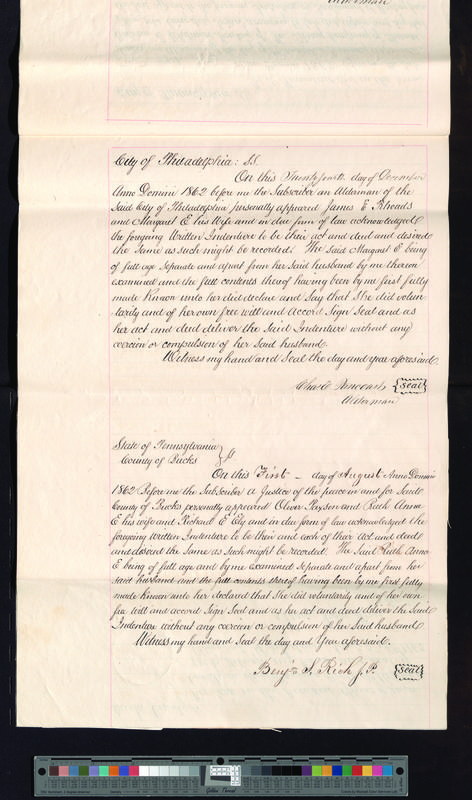 Alderman
City of Philadelphia: SS.
On this Twenty fourth day of December
Anno Domini 1862 before me the Subscriber an Alderman of the
Said City of Philadelphia personally appeared James E Rhoads
and Margaret E his Wife and in due form of law acknowledged
the foregoing Written Indenture to be their act and deed and desired
the Same as such might be recorded. The Said Margaret E being
of full age Separate and apart from her Said husband by me thereon
examined and the full contents thereof having been by me first fully
made Known unto her did declare and Say that She did volun
tarily and of her own free will and Accord Sign Seal and as
her act and deed deliver the Said Indenture without any
coercion or compulsion of her Said husband.
Witness my hand and Seal the day and year aforesaid.
Seal
Alderman
State of Pennsylvania
County of Bucks } SS
On this First – day of August Anno Domini
1862 Before me the Subscriber a Justice of the peace in and for Said
County of Bucks personally appeared Oliver Paxson and Ruth Anna
E his wife and Richard E Ely and in due form of law acknowledged the
foregoing Written Indenture to be their and each of their act and deed
and desired the Same as Such might be recorded. The Said Ruth Anna
E being of full age and by me examined Separate and apart from her
Said husband and the full contents thereof having been by me first fully
made Known unto her declared that She did voluntarily and of her own
free will and accord Sign Seal and as her act and deed deliver the Said
Indenture without any coercion or compulsion of her Said husband
Witness my hand and Seal the day and Year aforesaid.
Benj'n S. Rich J.P. Seal